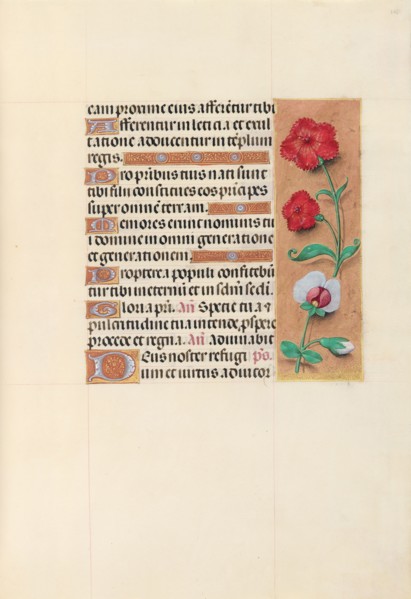 eam proxime eius afferentur tibi
Afferentur in leticia et exul
tatione adducentur in templum
regis.
Pro patribus tuis nati sunt
tibi filii constitues eos principes
super omnē terram.
Memores erunt nominis tui
domine in omni generatione
et generationem.
Propterea populi confitebū
tur tibi in eternū et in sclm̄ scli.
Gloria pr̄i. An̄ Specie tua ⁊
pulcritudine tua intende, p̱spere
procede et regna. An̄ Adiuuabit
Deus noster refugi p̄s.
um et virtus adiutor